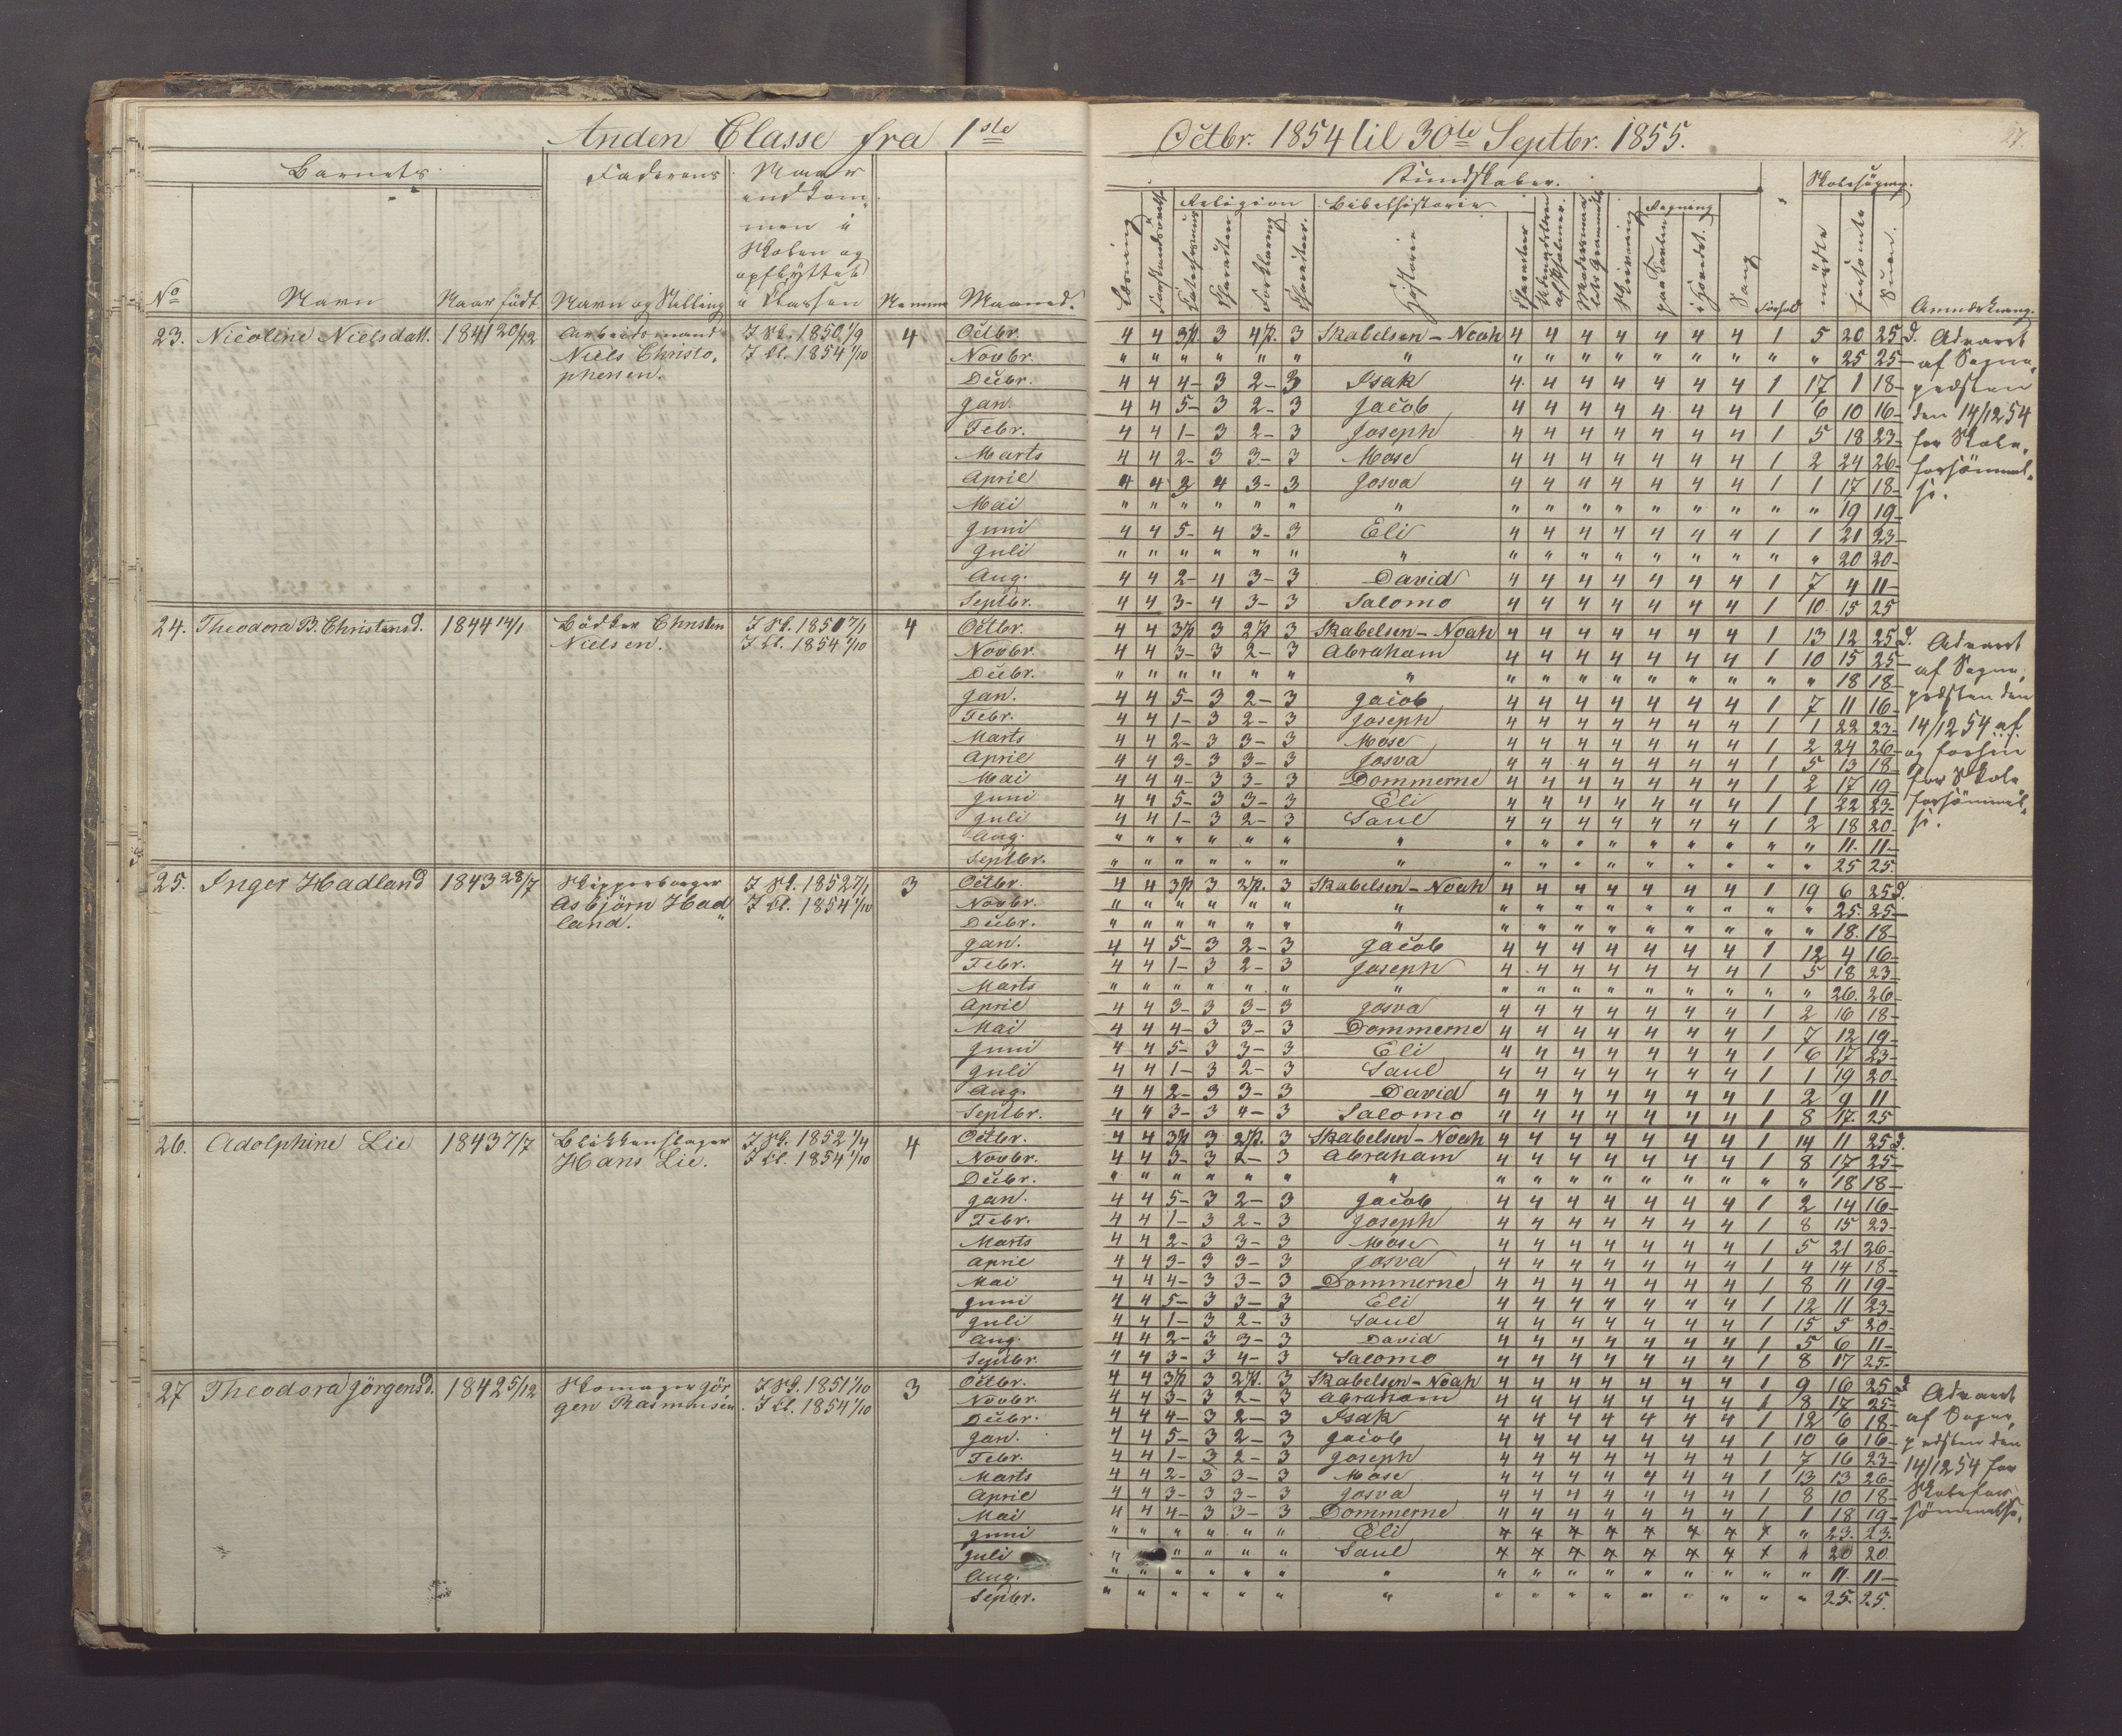 Anden Classe fra 1ste Octbr. 1854 til 30te Septbr. 1855. 27.
Barnets Faderens Naar indkom- Kundskaber. Skolesøgning.
men i Religion Bibelhistorie Regning
Skolen og
opflyttet
No Navn Naar født. Navn og Stilling i Klassen Numer Maaned. Læsning Forklaring Karakter. Historie Karakter Skrivning paa Tavlen i Hovedet. Sang Forhold mødte forsømte Sum. Anmærkning.
23. Nicoline Nielsdatt. 1841 20/12 Arbeidsmand I Sk. 1850 1/9 4 Octbr. 4 4 3p. 3 4p. 3 Skabelsen – Noah 4 4 4 4 4 4 4 1 5 20 25 d. Advaret
Niels Christo- I Cl. 1854 1/10 Novbr. " " " " " " " " " " " " " " " " 25 25 – af Sogne-
phersen. Decbr. 4 4 4 – 3 2 – 3 Isak 4 4 4 4 4 4 4 1 17 1 18 – præsten
Jan. 4 4 5 – 3 2 – 3 Jacob 4 4 4 4 4 4 4 1 6 10 16 – den 14/12 54
Febr. 4 4 1 – 3 2 – 3 Joseph 4 4 4 4 4 4 4 1 5 18 23 – for Skole-
Marts 4 4 2 – 3 3 – 3 Mose 4 4 4 4 4 4 4 1 2 24 26 – forsømmel-
April 4 4 3 4 3 – 3 Josva 4 4 4 4 4 4 4 1 1 17 18 – se.
Mai " " " " " " " " " " " " " " " " 19 19 –
Juni 4 4 5 – 4 3 – 3 Eli 4 4 4 4 4 4 4 1 1 21 23 –
Juli " " " " " " " " " " " " " " " " 20 20 –
Aug. 4 4 2 – 4 3 – 3 David 4 4 4 4 4 4 4 1 7 4 11 –
Septbr. 4 4 3 – 4 3 – 3 Salomo 4 4 4 4 4 4 4 1 10 15 25
24. Theodora B. Christensd. 1844 14/1 Bødker Christen I Sk. 1851 7/1 4 Octbr. 4 4 3p 3 2p 3 Skabelsen – Noah 4 4 4 4 4 4 4 1 13 12 25 d. Advaret
Nielsen. I Cl. 1854 1/10 Novbr. 4 4 3 – 3 2 – 3 Abraham 4 4 4 4 4 4 4 1 10 15 25 – af Sogne-
Decbr. " " " " " " " " " " " " " " " " 18 18 – præsten den
Jan. 4 4 5 – 3 2 – 3 Jacob 4 4 4 4 4 4 4 1 7 11 16 –
Febr. 4 4 1 – 3 2 – 3 Joseph 4 4 4 4 4 4 4 1 1 22 23 – 14/12 54
Marts 4 4 2 – 3 3 – 3 Mose 4 4 4 4 4 4 4 1 2 24 26 – og
April 4 4 3 – 3 3 – 3 Josva 4 4 4 4 4 4 4 1 5 13 18 – for Skole
Mai 4 4 4 – 3 3 – 3 Dommerne 4 4 4 4 4 4 4 1 2 17 19 – forsømmel-
Juni 4 4 5 – 3 3 – 3 Eli 4 4 4 4 4 4 4 1 1 22 23 – se.
Juli 4 4 1 – 3 2 – 3 Saul 4 4 4 4 4 4 4 1 2 18 20 –
Aug. " " " " " " " " " " " " " " " " 11. 11 –
Septbr. " " " " " " " " " " " " " " " " 25 25.
25. Inger Hadland 1843 28/7 Skipperborger I Sk. 1852 7/1 3 Octbr. 4 4 3p 3 2p. 3 Skabelsen – Noah 4 4 4 4 4 4 4 1 19 6 25 d.
Asbjørn Had I Cl. 1854 1/10 Novbr. " " " " " " " " " " " " " " " " 25. 25 –
land. Decbr. " " " " " " " " " " " " " " " " 18. 18 –
Jan. 4 4 5 – 3 2 – 3 Jacob 4 4 4 4 4 4 4 1 12 4 16 –
Febr. 4 4 1 – 3 2 – 3 Joseph 4 4 4 4 4 4 4 1 5 18 23 –
Marts " " " " " " " " " " " " " " " " 26. 26 –
April 4 4 3 – 3 3 – 3 Josva 4 4 4 4 4 4 4 1 2 16 18 –
Mai 4 4 4 – 3 3 – 3 Dommerne 4 4 4 4 4 4 4 1 7 12 19 –
Juni 4 4 5 – 3 3 – 3 Eli 4 4 4 4 4 4 4 1 6 17 23 –
Juli 4 4 1 – 3 2 – 3 Saul 4 4 4 4 4 4 4 1 1 19 20 –
Aug. 4 4 2 – 3 3 – 3 David 4 4 4 4 4 4 4 1 2 9 11
Septbr. 4 4 3 – 3 4 – 3 Salomo 4 4 4 4 4 4 4 1 8 17. 25
26. Adolphine Lie 1843 7/7 Blikkenslager I Sk. 1852 1/4 4 Octbr. 4 4 3p 3 2p. 3 Skabelsen – Noah 4 4 4 4 4 4 4 1 14 11 25 d.
Hans Lie. I Cl. 1854 1/10 Novbr. 4 4 3 – 3 2 – 3 Abraham 4 4 4 4 4 4 4 1 8 17 25 –
Decbr. " " " " " " " " " " " " " " " " 18 18 –
Jan. 4 4 5 – 3 2 – 3 Jacob 4 4 4 4 4 4 4 1 2 14 16 –
Febr. 4 4 1 – 3 2 – 3 Joseph 4 4 4 4 4 4 4 1 8 15 23 –
Marts 4 4 2 – 3 3 – 3 Mose 4 4 4 4 4 4 4 1 5 21 26 –
April 4 4 3 – 3 3 – 3 Josva 4 4 4 4 4 4 4 1 4 14 18 –
Mai 4 4 4 – 3 3 – 3 Dommerne 4 4 4 4 4 4 4 1 8 11 19 –
Juni 4 4 5 – 3 3 – 3 Eli 4 4 4 4 4 4 4 1 12 11 23 –
Juli 4 4 1 – 3 2 – 3 Saul 4 4 4 4 4 4 4 1 15 5 20 –
Aug. 4 4 2 – 3 3 – 3 David 4 4 4 4 4 4 4 1 5 6 11 –
Septbr. 4 4 3 – 3 4 – 3 Salomo 4 4 4 4 4 4 4 1 8 17 25 –
27 Theodora Jörgensd. 1842 5/12 Skomager Jör I Sk. 1851 1/10 3 Octbr. 4 4 3p 3 2p. 3 Skabelsen – Noah 4 4 4 4 4 4 4 1 9 16 25 d Advaret
gen Rasmussen. I Cl. 1854 1/10 Novbr. 4 4 3 – 3 2 – 3 Abraham 4 4 4 4 4 4 4 1 8 17 25 –
Decbr. 4 4 4 – 3 2 – 3 Isak 4 4 4 4 4 4 4 1 12 6 18 – af Sogne-
Jan. 4 4 5 – 3 2 – 3 Jacob 4 4 4 4 4 4 4 1 10 6 16 – præsten den
Febr. 4 4 1 – 3 2 – 3 Joseph 4 4 4 4 4 4 4 1 7 16 23 – 14/12 54 for
Marts 4 4 2 – 3 3 – 3 Mose 4 4 4 4 4 4 4 1 13 13 26 –
April 4 4 3 – 3 3 – 3 Josva 4 4 4 4 4 4 4 1 8 10 18 – Skolefor
Mai 4 4 4 – 3 3 – 3 Dommerne 4 4 4 4 4 4 4 1 1 18 19 – sømmelse.
Juni " " " " " " Eli 4 4 4 4 4 4 4 1 " 23. 23.
Juli " " " " " Saul 4 4 4 4 4 4 4 1 " 20 20
Aug. " " " " " " " " " " " " " " " " 11 11 –
Septbr. " " " " " " " " " " " " " " " " 25. 25.